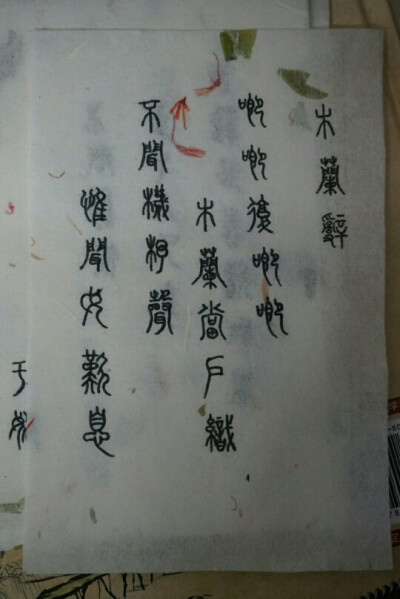 木蘭辭
唧唧復唧唧
木蘭當戶織
不聞機杼聲
惟聞女歎息